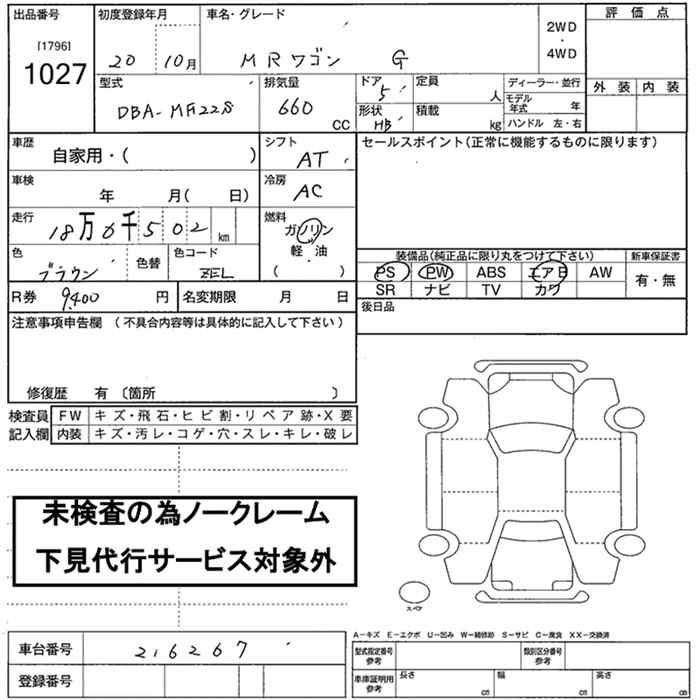 出品番号 初度登録年月 車名・グレード 2WD ・ 4WD 評価点
[1796]
1027
20 10月 MRワゴン G
外装 内装
型式 排気量 ドア 定員 ディーラー・並行
DBA-MF22S 660 CC 5 人 モデル年式 年
形状 積載 ハンドル 左・右
HB kg
車歴 シフト セールスポイント(正常に機能するものに限ります)
自家用・( ) AT
車検 冷房
年 月( 日) AC
走行 燃料
18万0千502 km ガソリン
軽・油
色 色替 色コード ( ・ )
ブラウン ZEL
装備品(純正品に限り丸をつけて下さい) 新車保証書
PS PW ABS エアB AW 有・無
SR ナビ TV カワ
R券 9,400 円 名変期限 月 日 後日品
注意事項申告欄 (不具合内容等は具体的に記入して下さい)
修復歴 有 〔箇所 〕
検査員 FW キズ・飛石・ヒビ割・リペア跡・X要
記入欄 内装 キズ・汚レ・コゲ・穴・スレ・キレ・破レ
未検査の為ノークレーム
下見代行サービス対象外
スペア
A-キズ E-エクボ U-凹み W-補修跡 S-サビ C-腐食 XX-交換済
車台番号 216267 型式指定番号 参考 類別区分番号 参考
登録番号 車庫証明用 参考 長さ cm 幅 cm 高さ cm